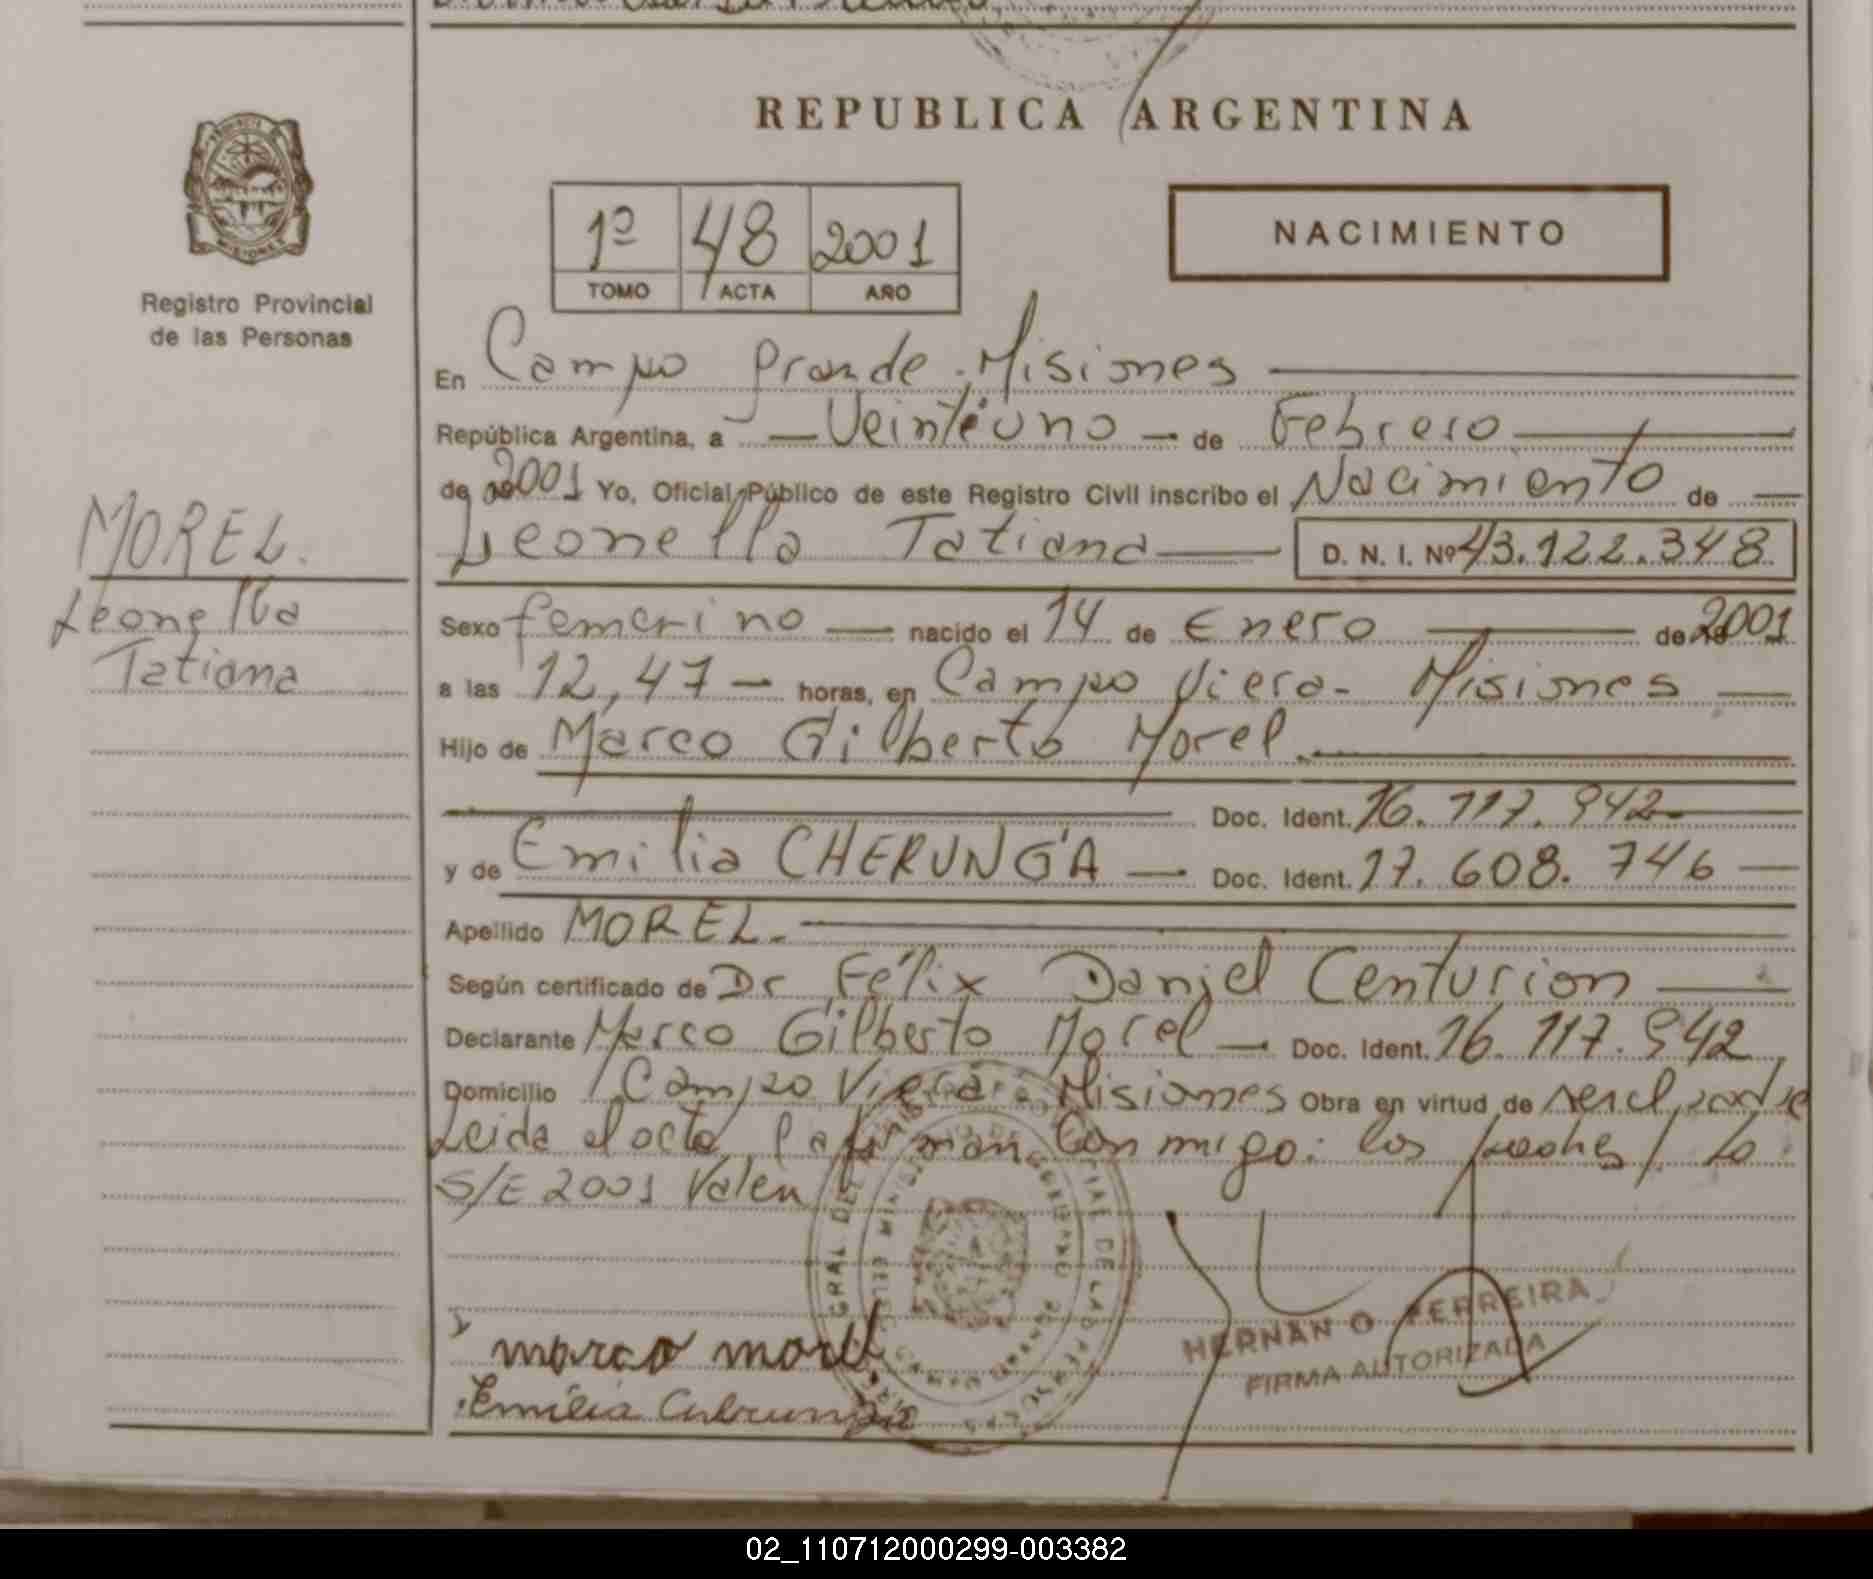 REPUBLICA ARGENTINA
PROVINCIA DE
MISIONES
Registro Provincial
de las Personas
1º 48 2001
TOMO ACTA AÑO
NACIMIENTO
En Campo Grande - Misiones
República Argentina, a Veintiuno de Febrero
de 2001 Yo, Oficial Público de este Registro Civil inscribo el Nacimiento de
Leonella Tatiana D. N. I. Nº 43.122.348.
MOREL.
Leonella
Tatiana
Sexo femenino nacido el 14 de Enero de 2001
a las 12,47 horas, en Campo Viera - Misiones
Hijo de Marco Gilberto Morel.
Doc. Ident. 16.117.942
y de Emilia CHERUNGA Doc. Ident. 17.608.746
Apellido MOREL.
Según certificado de Dr Félix Daniel Centurion
Declarante Marco Gilberto Morel Doc. Ident. 16.117.942
Domicilio Campo Viera Misiones Obra en virtud de ser el padre
Leida el acta la firman conmigo: los padres / lo
S/E 2001 Valen
marco morel
Emilia
HERNAN O FERREIRA
FIRMA AUTORIZADA
02_110712000299-003382